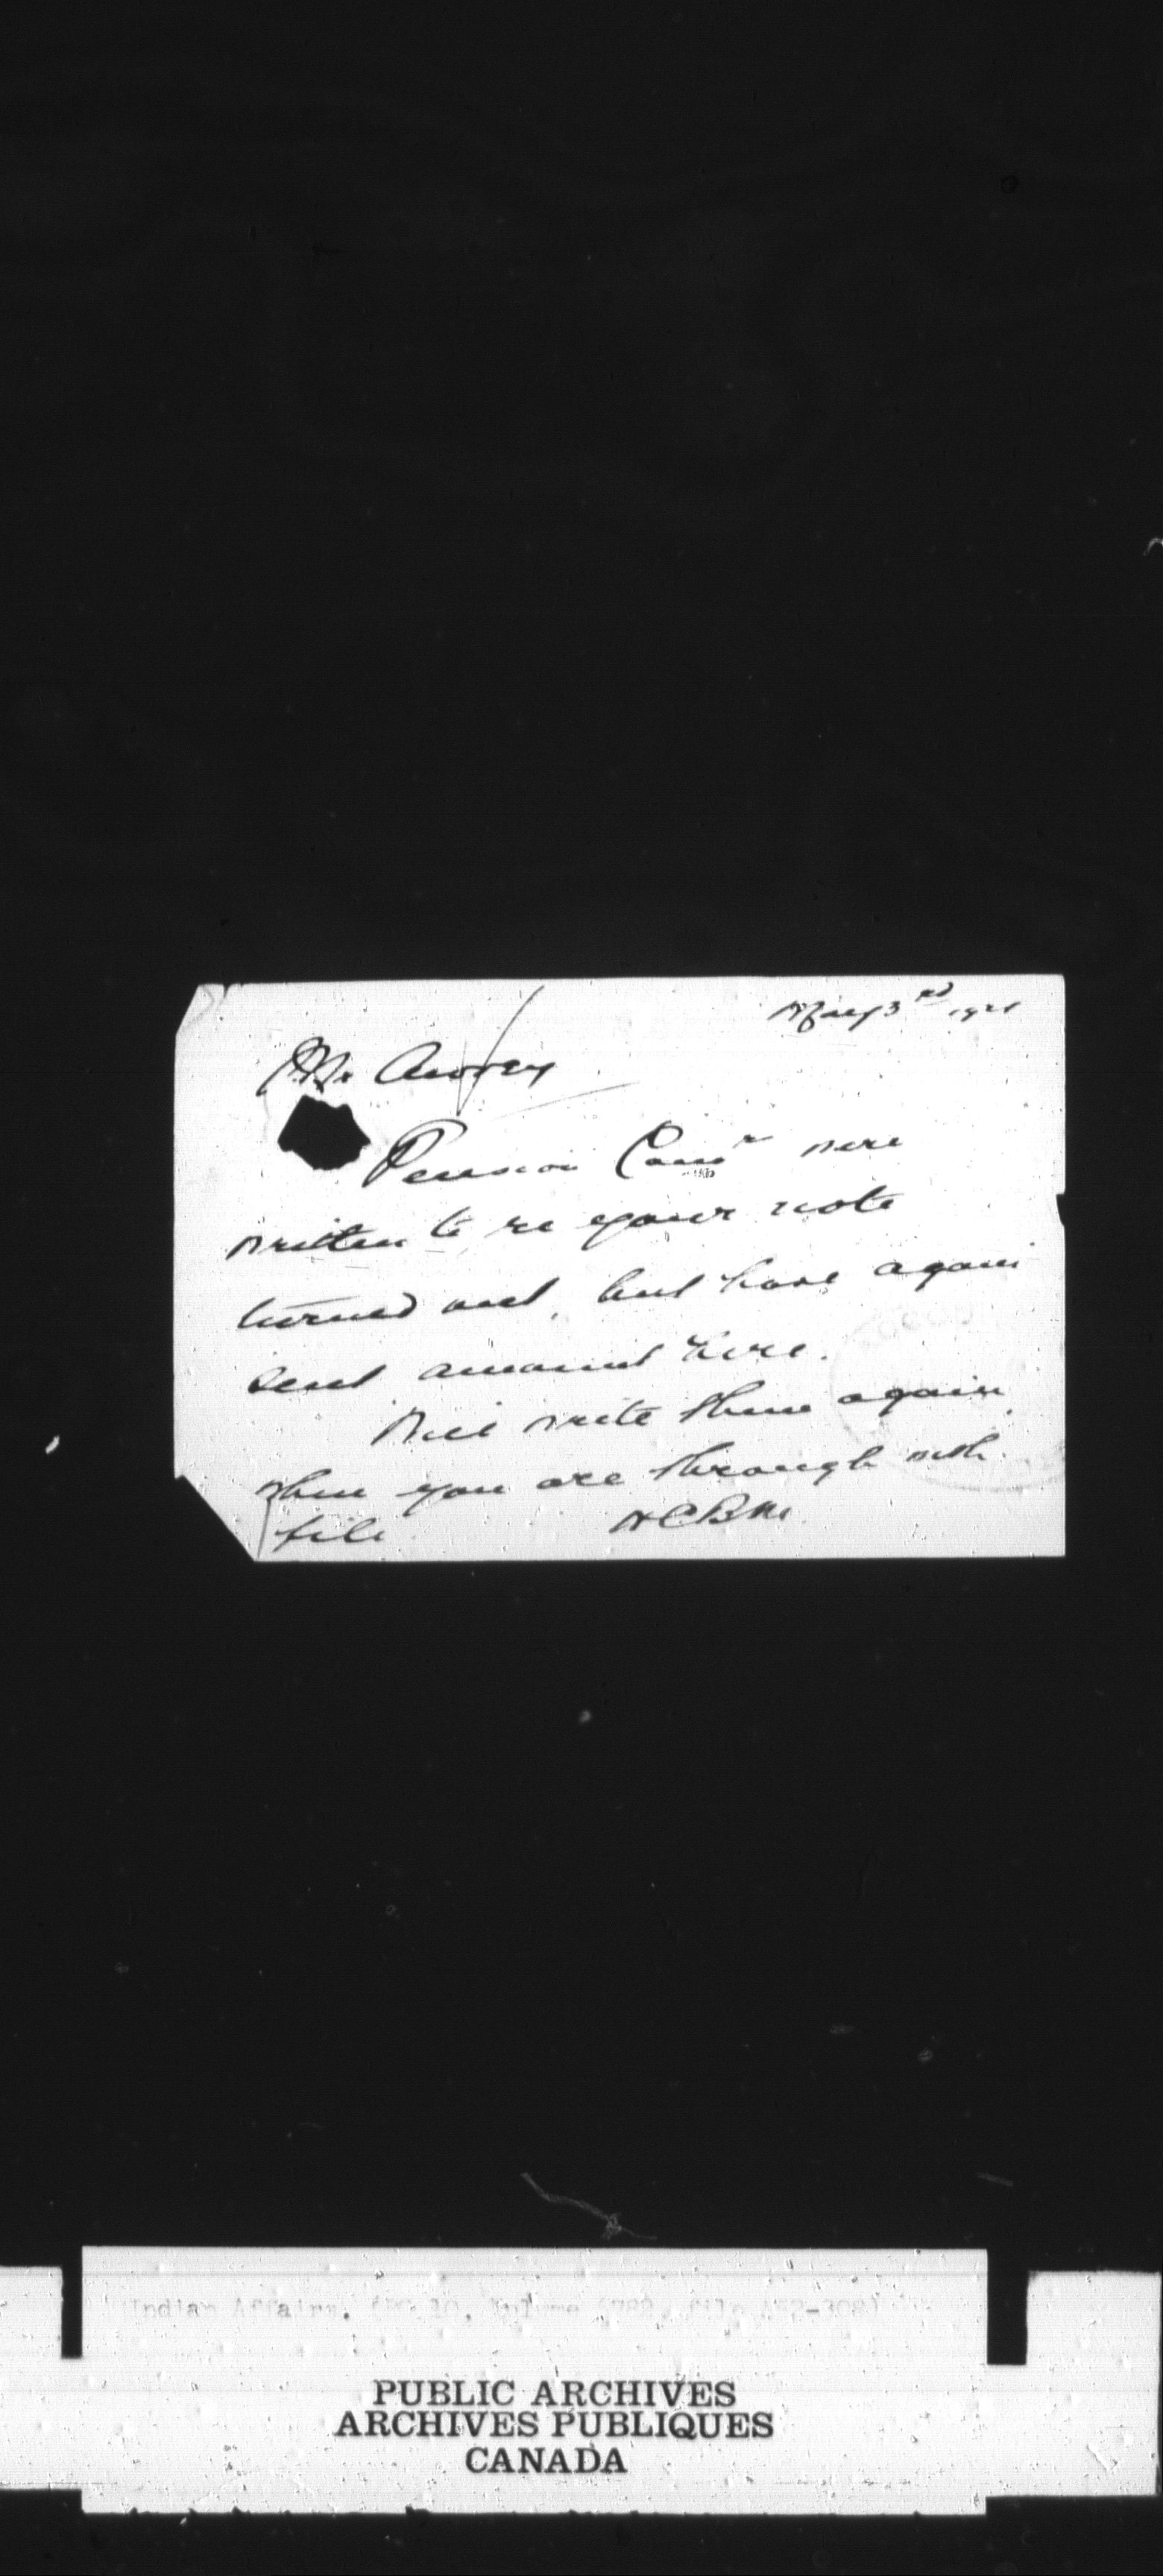 May 3rd 1921
Mr Awrey
Pension Comr were
written to re your note
turned out, but have again
sent amount here.
Will write them again
when you are through with
file HCBM
Indian Affairs. (RG 10, Volume
PUBLIC ARCHIVES
ARCHIVES PUBLIQUES
CANADA